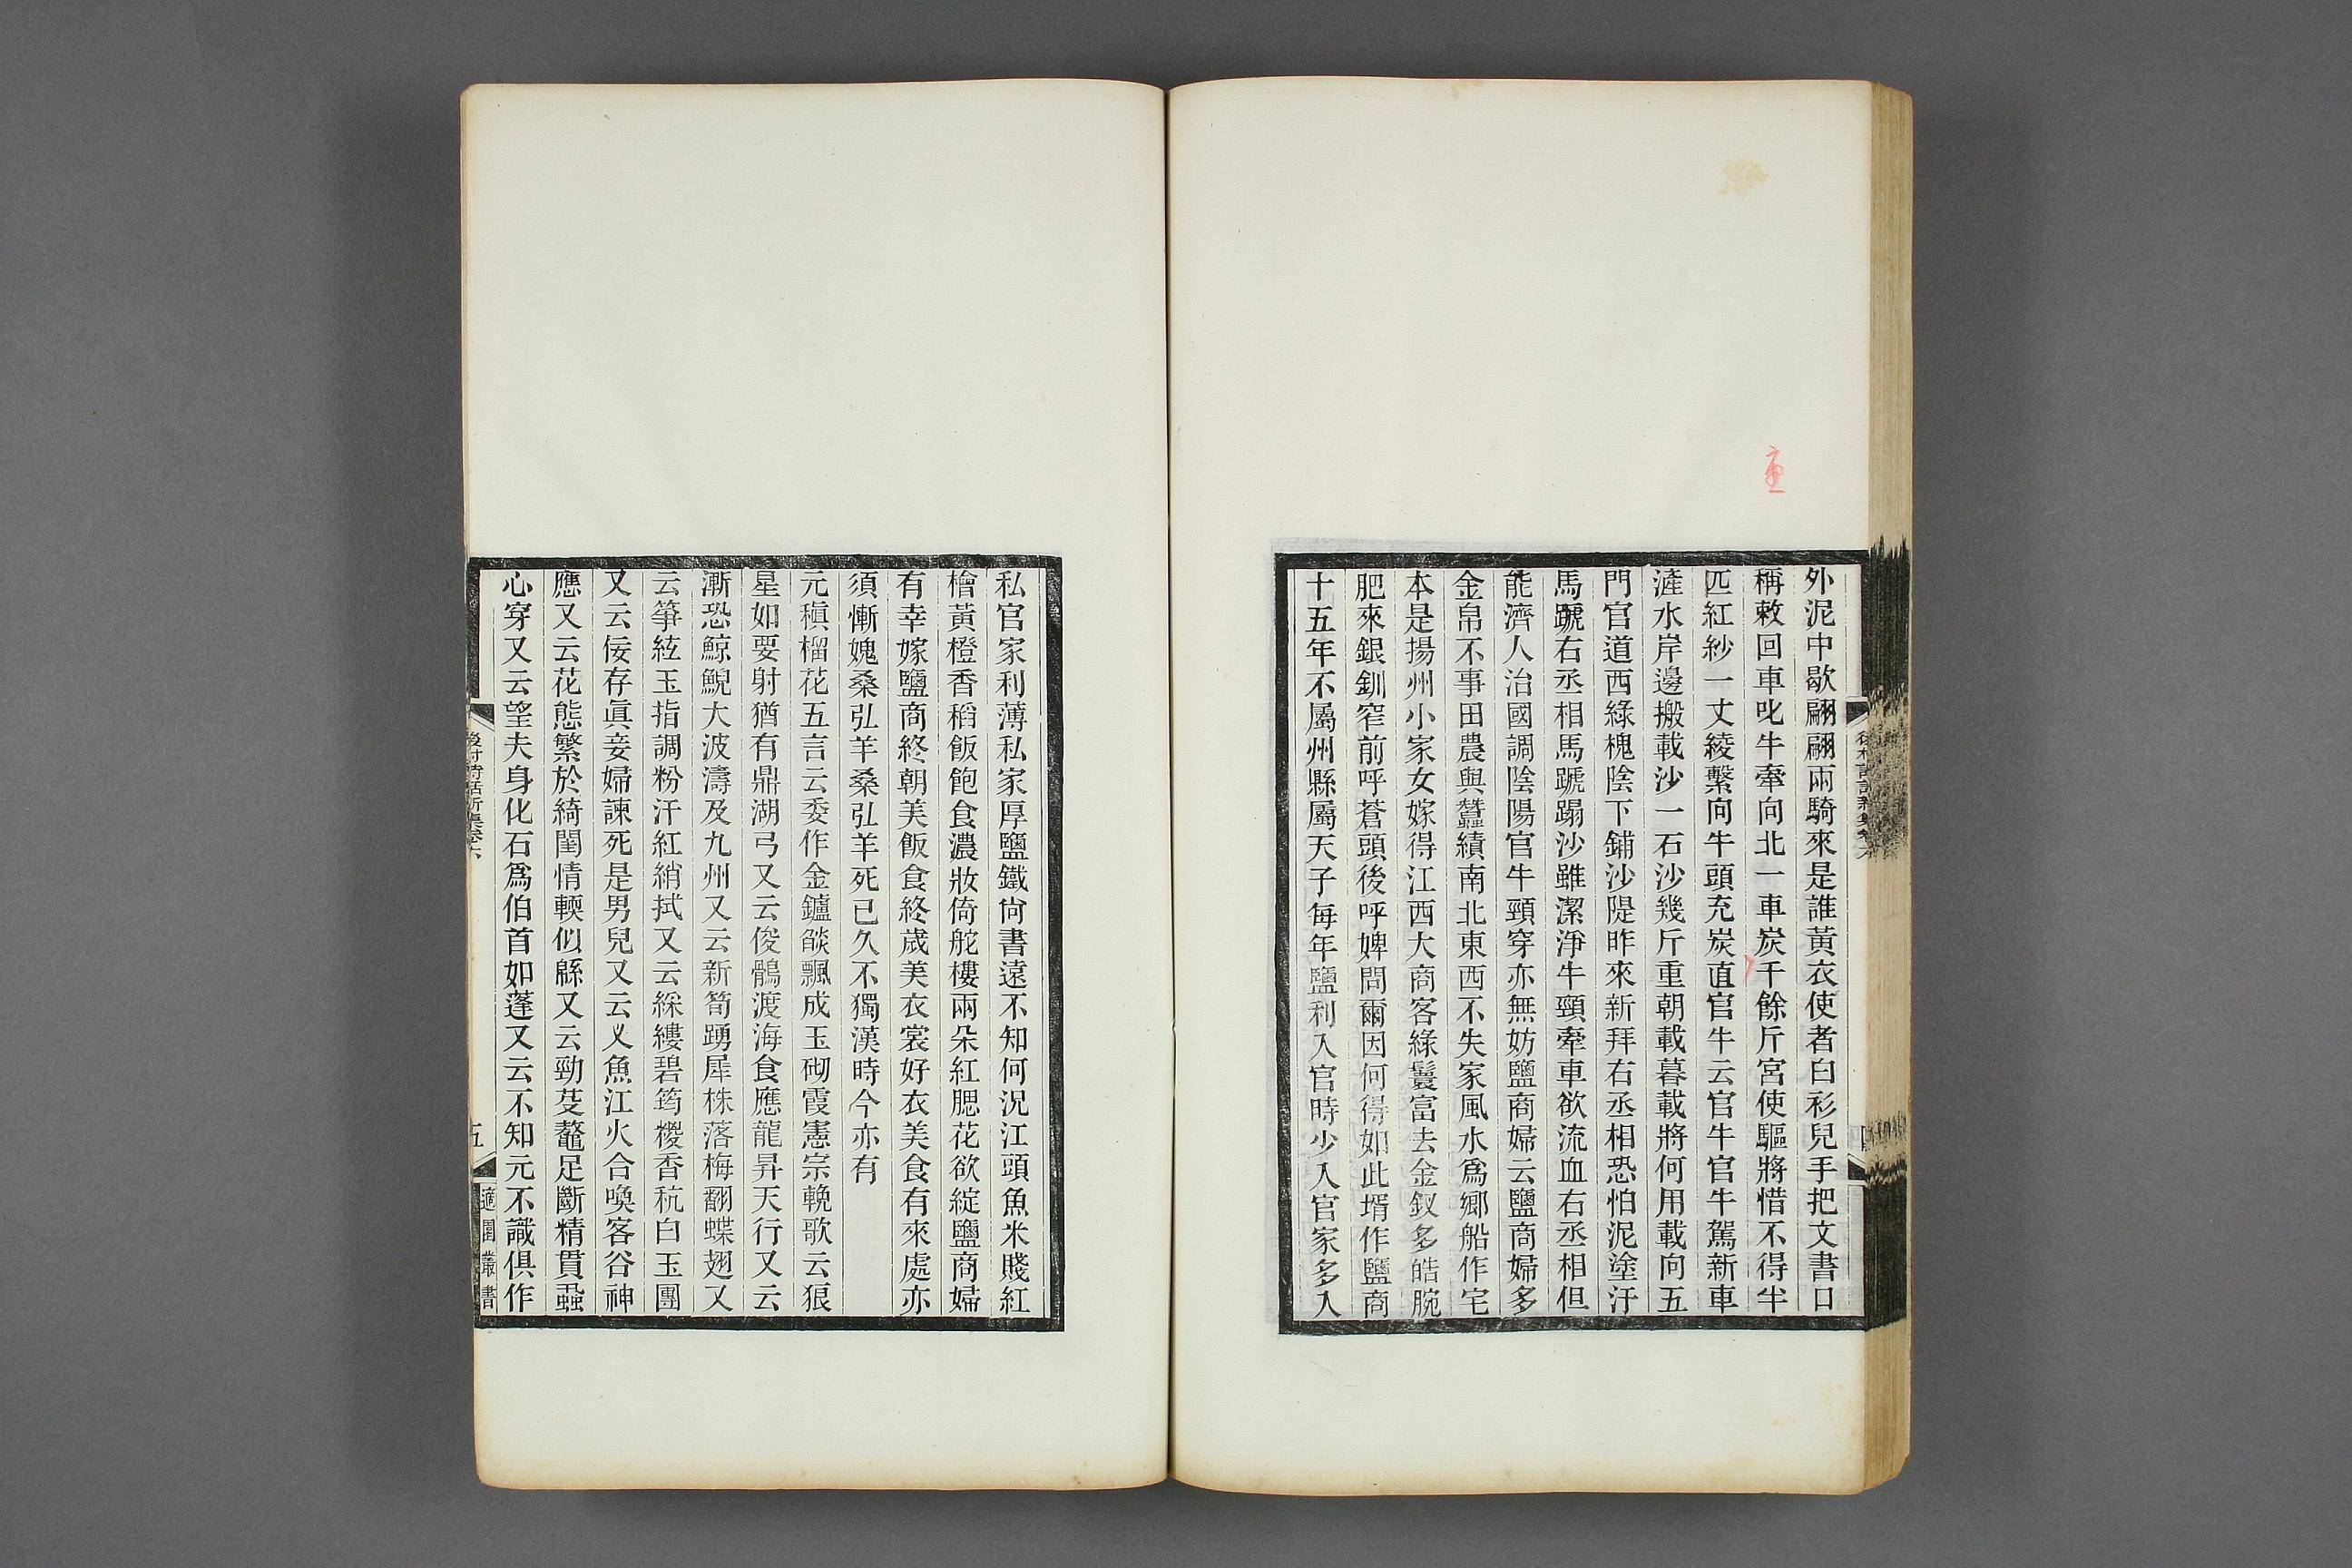 外泥中歇翩翩兩騎來是誰黃衣使者白衫兒手把文書口
稱敕回車叱牛牽向北一車炭千餘斤宮使驅將惜不得半
匹紅紗一丈綾繫向牛頭充炭直官牛云官牛官牛駕新車
滻水岸邊搬載沙一石沙幾斤重朝載暮載將何用載向五
門官道西綠槐陰下鋪沙隄昨來新拜右丞相恐怕泥塗汙
馬蹏右丞相馬蹏蹋沙雖潔淨牛頸牽車欲流血右丞相但
能濟人治國調陰陽官牛頸穿亦無妨鹽商婦云鹽商婦多
金帛不事田農與蠶績南北東西不失家風水爲鄉船作宅
本是揚州小家女嫁得江西大商客綠鬟富去金釵多皓腕
肥來銀釧窄前呼蒼頭後呼婢問爾因何得如此壻作鹽商
十五年不屬州縣屬天子每年鹽利入官時少入官家多入
私官家利薄私家厚鹽鐵尙書遠不知何況江頭魚米賤紅
檜黃橙香稻飯飽食濃妝倚舵樓兩朵紅腮花欲綻鹽商婦
有幸嫁鹽商終朝美飯食終歲美衣裳好衣美食有來處亦
須慚媿桑弘羊桑弘羊死已久不獨漢時今亦有
元稹榴花五言云委作金鑪燄飄成玉砌霞憲宗輓歌云狼
星如要射猶有鼎湖弓又云俊鶻渡海食應龍昇天行又云
漸恐鯨鯢大波濤及九州又云新筍踴犀株落梅翻蝶翅又
云箏絃玉指調粉汗紅綃拭又云綵縷碧筠糉香秔白玉團
又云佞存眞妾婦諫死是男兒又云乂魚江火合喚客谷神
應又云花態繁於綺閨情輭似緜又云勁芟鼇足斷精貫蝨
心穿又云望夫身化石爲伯首如蓬又云不知元不識俱作
後村詩話新集卷六
五
適園叢書